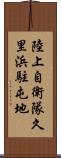 陸上自衛隊久
里浜駐屯地